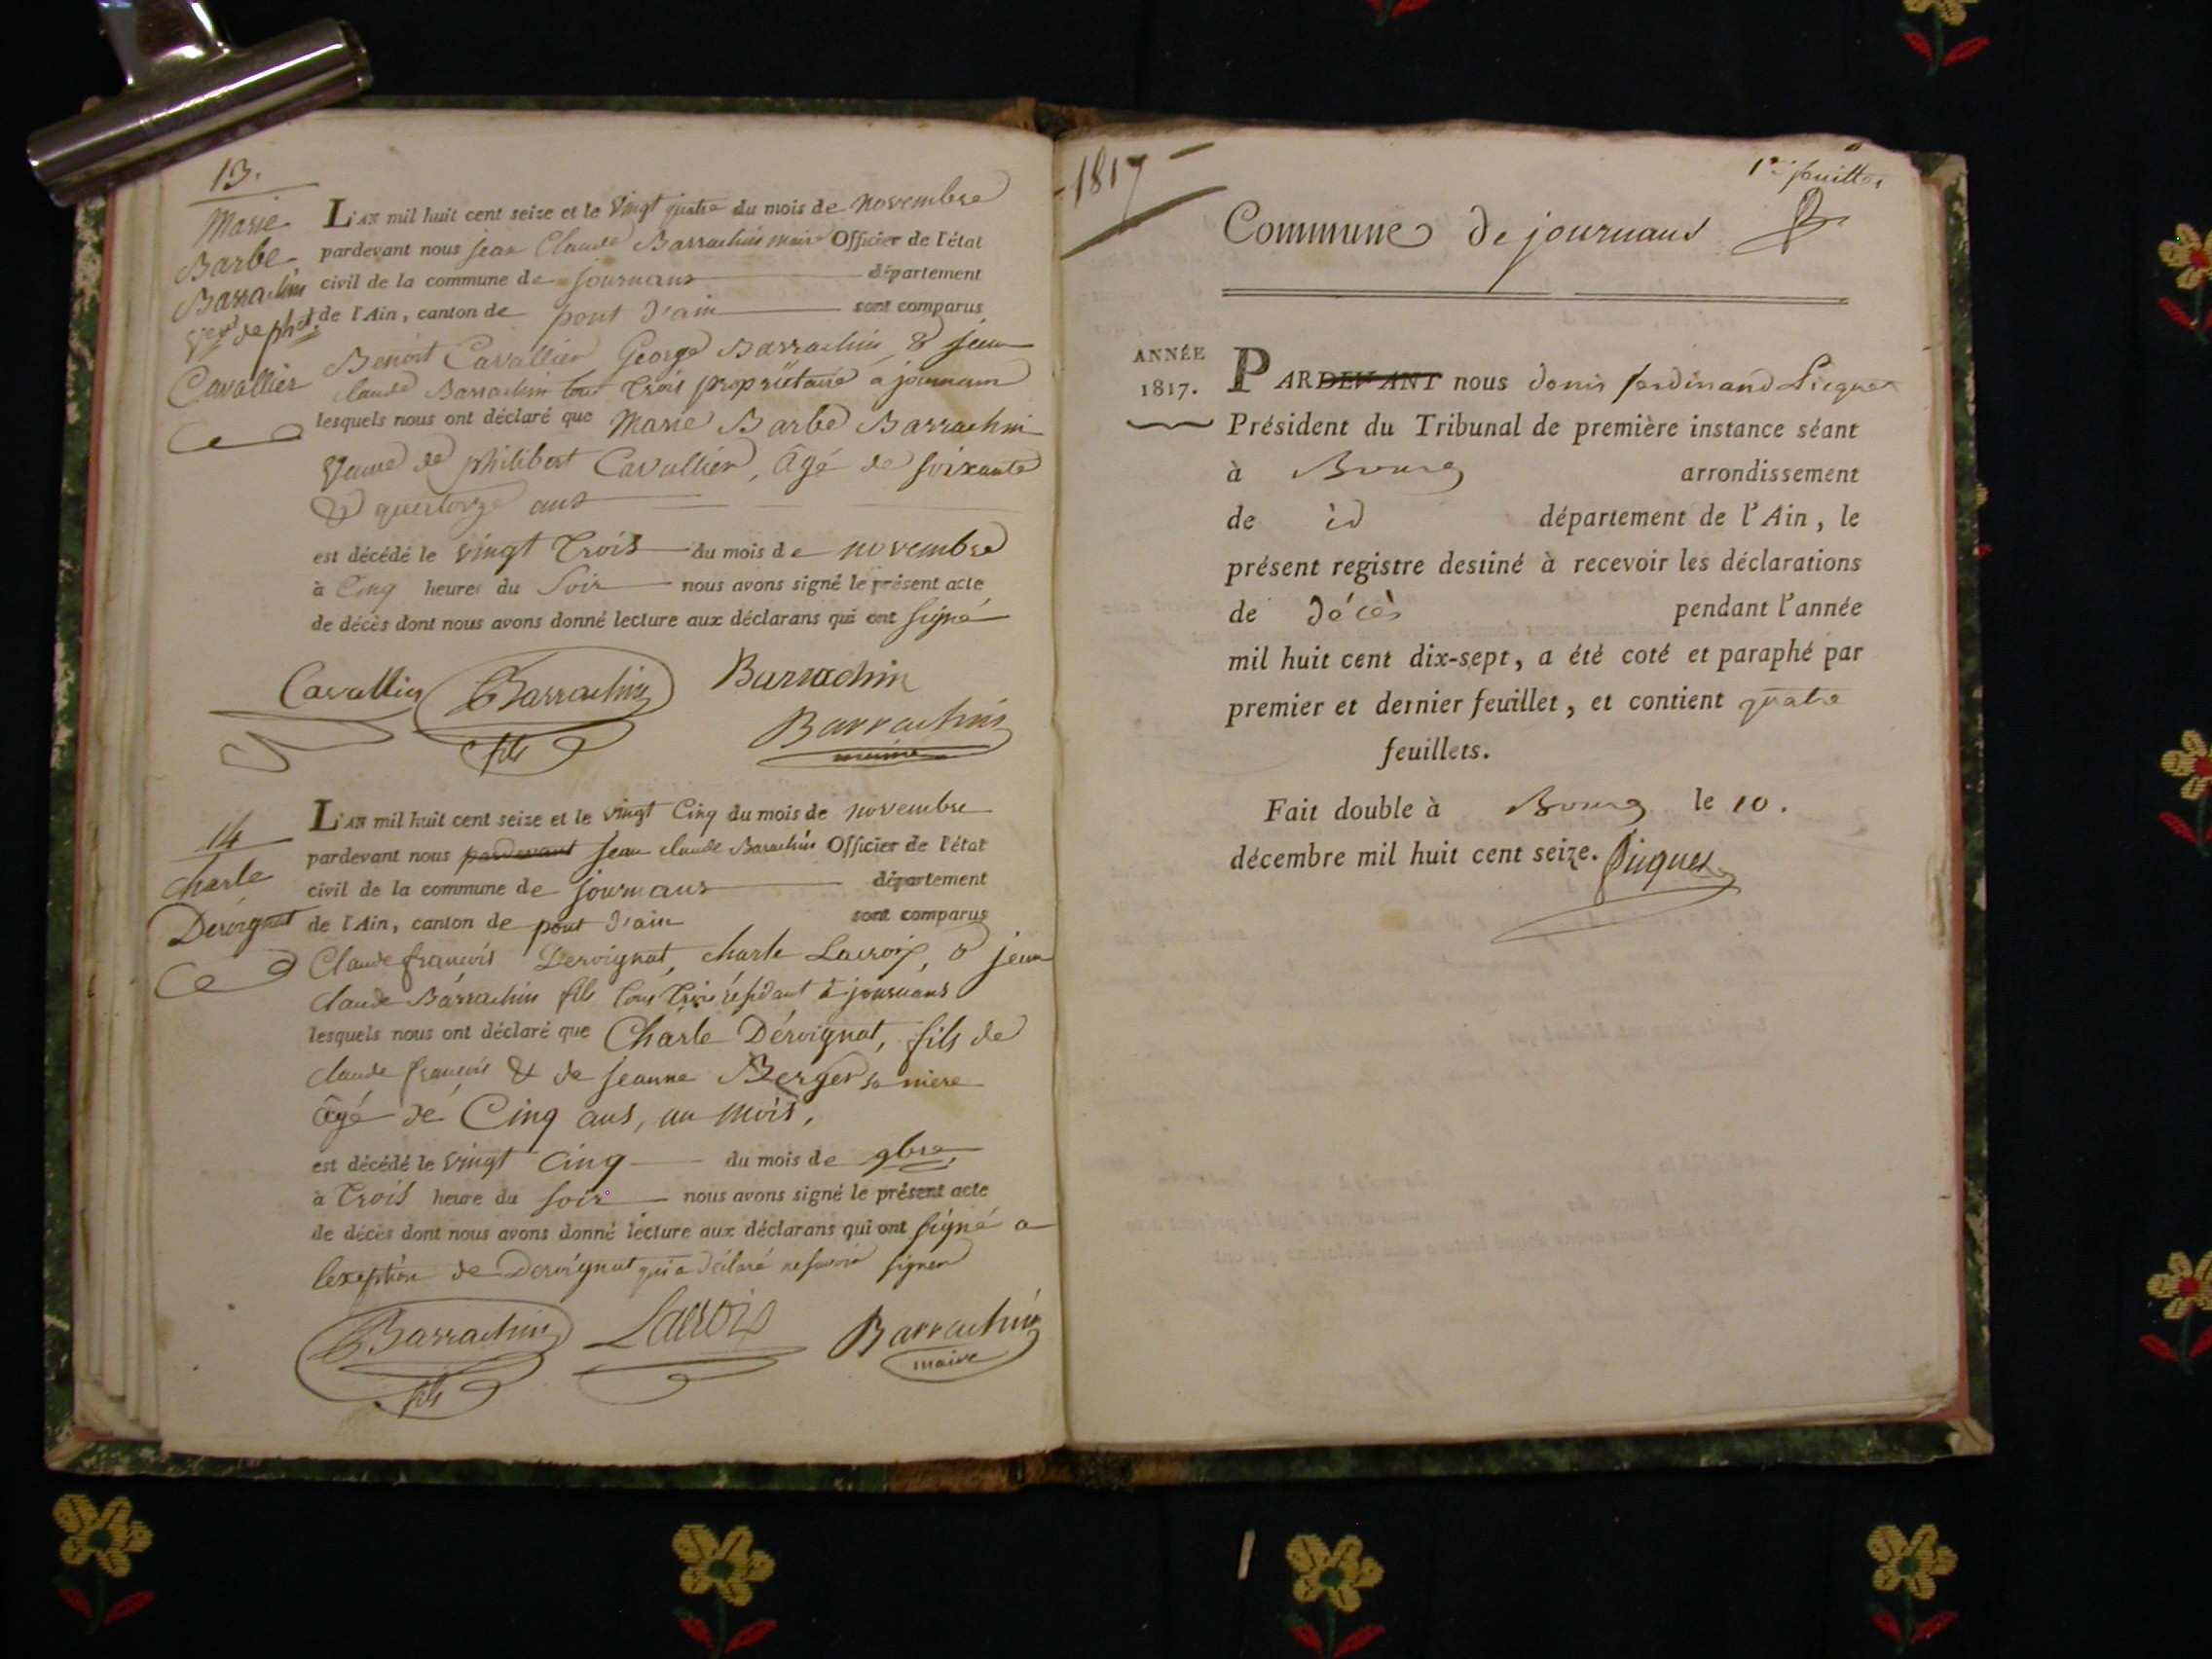 13.
Marie
Barbe
Barrachin
Cavallier
L'AN mil huit cent seize et le vingt quatre du mois de novembre
pardevant nous jean Claude Barrachin maire Officier de l'état
civil de la commune de journans département
de l'Ain, canton de pont d'ain sont comparus
Benoit Cavallier George Barrachin & jean
claude Barrachin tous trois propriétaire a journans
lesquels nous ont déclaré que Marie Barbe Barrachin
Veuve de philibert Cavallier, âgé de soixante
& quatorze ans
est décédé le vingt trois du mois de novembre
à cinq heures du soir nous avons signé le présent acte
de décès dont nous avons donné lecture aux déclarans qui ont signé
Cavallier Barrachin Barrachin
fils Barrachin
maire
14
charle
Deroignat
L'AN mil huit cent seize et le vingt cinq du mois de novembre
pardevant nous pardevant jean claude Barachin Officier de l'état
civil de la commune de journans département
de l'Ain, canton de pont d'ain sont comparus
Claude françois Deroignat, charle Lacroix, & jean
claude Barrachin fils tous trois résidant à journans
lesquels nous ont déclaré que Charle Déroignat, fils de
claude françois & de jeanne Berger sa mere
âgé de Cinq ans, un mois,
est décédé le vingt cinq du mois de 9bre
à trois heure du soir nous avons signé le présent acte
de décès dont nous avons donné lecture aux déclarans qui ont signé a
lexeption de Deroignat qui a déclaré ne savoir signer
Barrachin Lacroix Barrachin
fils maire
1817
1er feuillet
Commune de journans
ANNÉE
1817.
PARDEVANT nous denis ferdinand Picquet
Président du Tribunal de première instance séant
à Bourg arrondissement
de id département de l'Ain, le
présent registre destiné à recevoir les déclarations
de décès pendant l'année
mil huit cent dix-sept, a été coté et paraphé par
premier et dernier feuillet, et contient quatre
feuillets.
Fait double à Bourg le 10.
décembre mil huit cent seize. Picquet